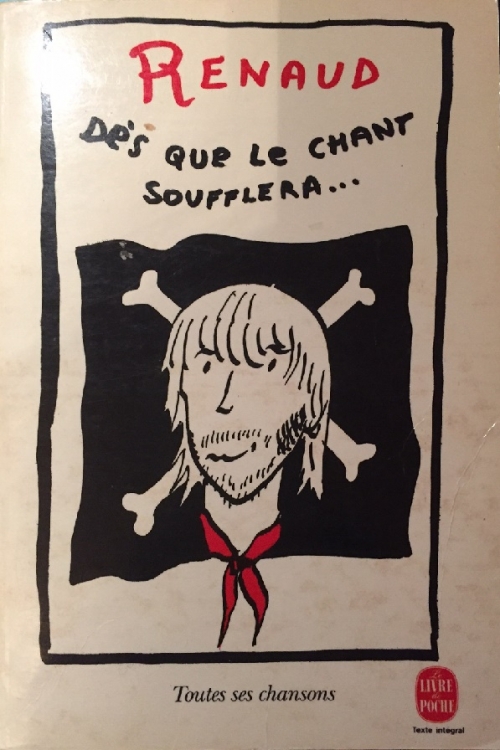 RENAUD
Dès QUE Le CHANT
SOUFFLERA...
Toutes ses chansons
Le
LIVRE
de
POCHE
Texte intégral